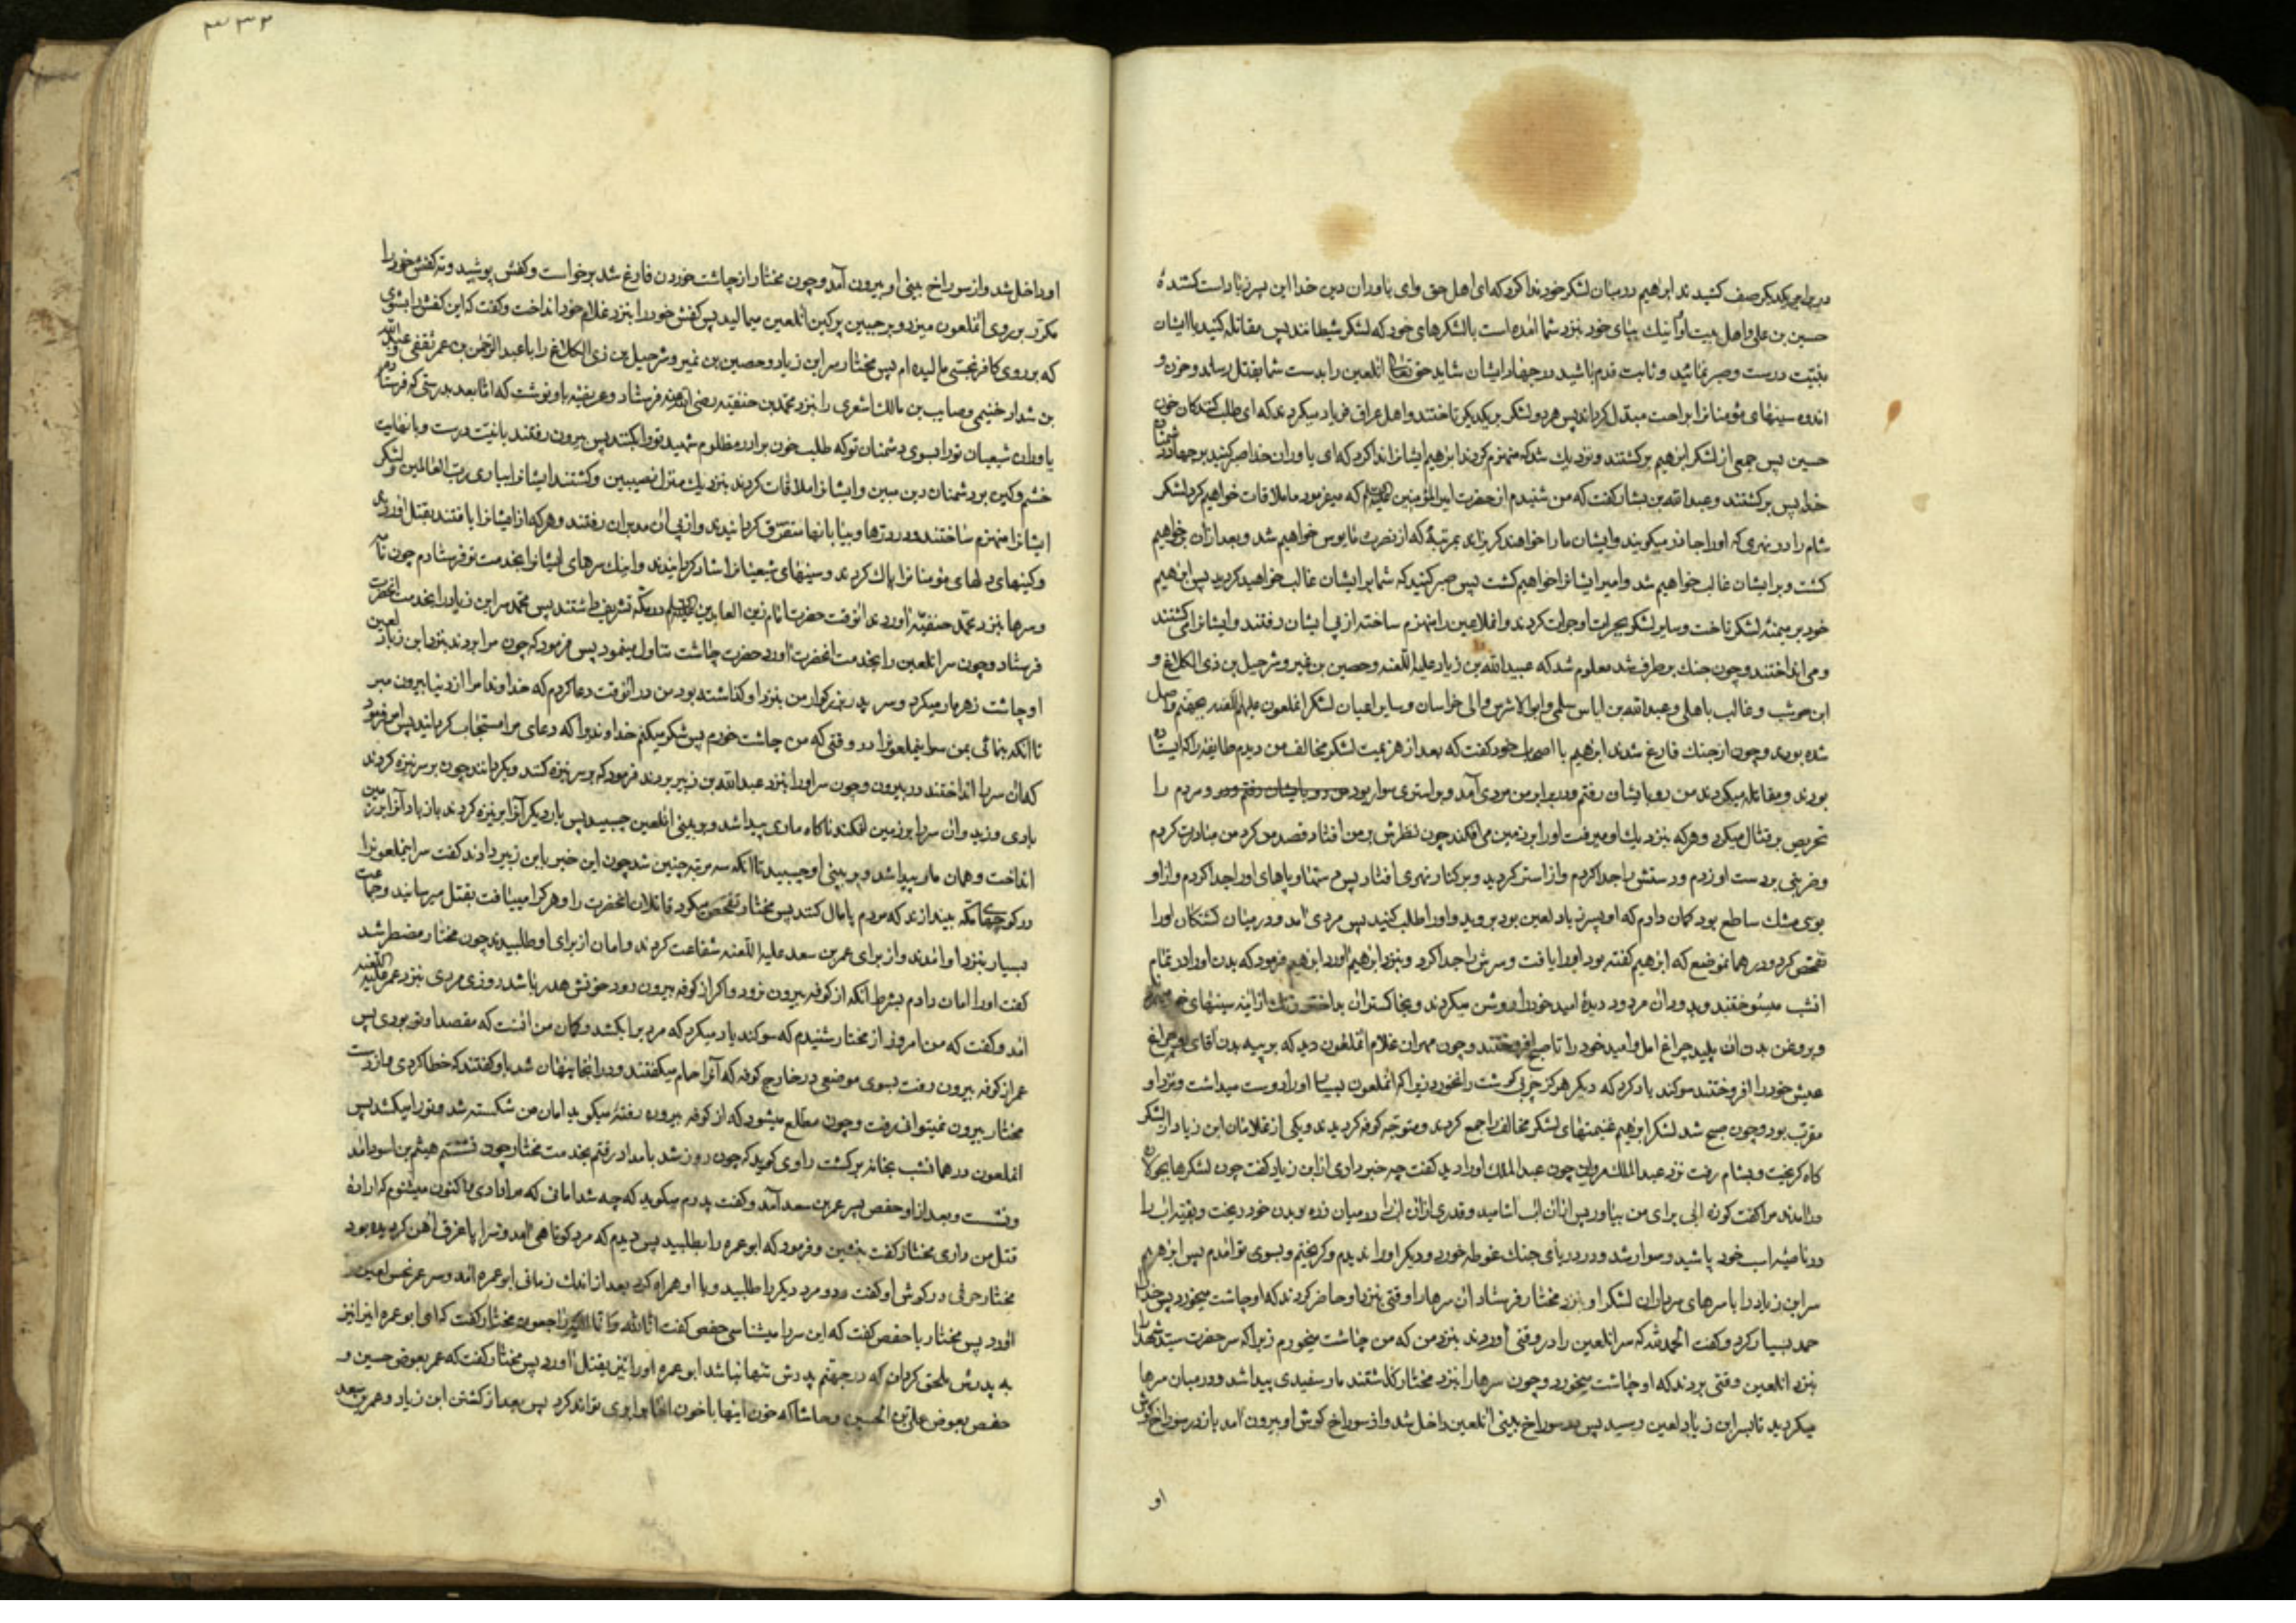 در برابر یکدیگر صف کشیدند ابراهیم در میان لشکر خود ندا کرد که ای اهل حق و ای یاوران دین خدا این پسر زیاد است کشندهٔ
حسین بن علی و اهل بیت او اینک بپای خود بنزد شما آمده است با لشکرهای خود که لشکر شیطانند پس مقاتله کنید با ایشان
بنیت درست و صبر نمائید و ثابت قدم باشید در جهاد ایشان شاید حق تعالی آنلعین را بدست شما بقتل رساند و حزن و
اندوه سینهای مؤمنانرا براحت مبدل گرداند پس هر دو لشکر بر یکدیگر تاختند و اهل عراق فریاد میکردند که ای طلب کنندکان خون
حسین پس جمعی از لشکر ابراهیم برکشتند و نزدیک شد که منهزم کردند ابراهیم ایشانرا ندا کرد که ای یاوران خدا صبر کنید بر جهاد دشمنان
خدا پس برکشتند و عبدالله بن بشار کفت که من شنیدم از حضرت امیرالمؤمنین که میفرمود ما ملاقات خواهیم کرد لشکر
شام را در نهری که اورا جازر میکویند و ایشان مارا خواهند کریزاند بمرتبهٔ که از نصرت مایوس خواهیم شد و بعد از آن برخواهیم
کشت و بر ایشان غالب خواهیم شد و امیر ایشانرا خواهیم کشت پس صبر کنید که شما بر ایشان غالب خواهید کردید پس ابراهیم
خود بر میمنهٔ لشکر تاخت و سایر لشکر بجرات او جرات کردند و آنملاعین را منهزم ساختند از پی ایشان رفتند و ایشانرا می کشتند
و می انداختند و چون جنک برطرف شد معلوم شد که عبیدالله بن زیاد علیه اللعنه و حصین بن نمیر و شرحیل بن ذی الکلاع و
ابن حوشب و غالب باهلی و عبدالله بن ایاس سلمی و ابوالاشرس والی خراسان و سایر اعیان لشکر آنملعون علیهم اللعنه بجهنم واصل
شده بودند و چون از جنک فارغ شدند ابراهیم با اصحاب خود کفت که بعد از هزیمت لشکر مخالف من دیدم طایفهٔ را که ایستاده
بودند و مقاتله میکردند من رو بایشان رفتم و در برابر من مردی آمد و بر استری سوار بود و مردم را
تحریص بر قتال میکرد و هرکه بنزدیک او میرفت اورا بر زمین می افکند چون نظرش بر من افتاد قصد من کرد من مبادرت کردم
و ضربتی بر دست او زدم و دستش را جدا کردم و از استر کردید و بر کنار نهری افتاد پس دستها و پاهای اورا جدا کردم و از او
بوی مشک ساطع بود کمان دارم که او پسر زیاد لعین بود بروید و اورا طلب کنید پس مردی آمد و در میان کشتکان اورا
تفحص کرد و در همانموضع که ابراهیم کفته بود اورا یافت و سرش را جدا کرد و بنزد ابراهیم آورد ابراهیم فرمود که بدن اورا در تمام
آنشب میسوختند و بدود آن مردود دیدهٔ امید خود را روشن میکردند و بخاکستر آن زنک از آینه سینهای خود
و بروغن بدن آن پلید چراغ امل و امید خود را تا صبح افروختند و چون مهران غلام آنملعون دید که بر پیه بدن آقای او چراغ
عیش خود را افروختند سوکند یاد کرد که دیکر هرکز چربی کوشت را نخورد زیرا که آنملعون بسیار اورا دوست میداشت و نزد او
مقرب بود و چون صبح شد لشکر ابراهیم غنیمتهای لشکر مخالف را جمع کردند و متوجه کوفه کردیدند و یکی از غلامان ابن زیاد از لشکر
کاه کریخت و بشام رفت نزد عبدالملک مروان چون عبدالملک اورا دید کفت چه خبر داری از ابن زیاد کفت چون لشکرها بجولان
درآمدند مرا کفت کوزه آبی برای من بیاور پس از آن آب آشامید و قدری از آن آبرا در میان زره و بدن خود ریخت و بقیه آب را
در ناصیهٔ اسب خود پاشید و سوار شد و در دریای جنک غوطه خورد و دیکر اورا ندیدم و کریختم و بسوی تو آمدم پس ابراهیم
سر ابن زیاد را با سرهای سرداران لشکر او بنزد مختار فرستاد آن سرهارا وقتی بنزد او حاضر کردند که او چاشت میخورد پس خدا را
حمد بسیار کرد و کفت الحمد لله که سر آنلعین را در وقتی آوردند بنزد من که من چاشت میخورم زیرا که سر حضرت سید شهدا
بنزد آنلعین وقتی بردند که او چاشت میخورد و چون سرهارا بنزد مختار کذاشتند مار سفیدی پیدا شد و در میان سرها
میکردید تا بسر ابن زیاد لعین رسید پس در سوراخ بینی آنلعین داخل شد و از سوراخ کوش او بیرون آمد باز در سوراخ کوش
او
۳۳۳
او داخل شد و از سوراخ بینی او بیرون آمد و چون مختار از چاشت خوردن فارغ شد برخواست و کفش پوشید و ته کفش خود را
مکرر بر روی آنملعون میزد و بر جبین پرکین آنلعین میمالید پس کفش خود را بنزد غلام خود انداخت و کفت که این کفش را بشوی
که بر روی کافر نجسی مالیده ام پس مختار سر ابن زیاد و حصین بن نمیر و شرحیل بن ذی الکلاع را با عبدالرحمن بن عمر ثقفی و عبدالله
بن شداد خثیمی و صایب بن مالک اشعری را بنزد محمد بن حنفیه رضی الله عنه فرستاد و عریضه باو نوشت که اما بعد بدرستی که فرستادم
یاوران شیعیان تورا بسوی دشمنان تو که طلب خون برادر مظلوم شهید تورا بکنند پس بیرون رفتند با نیت درست و با نهایت
خشم و کین بر دشمنان دین مبین و ایشانرا ملاقات کردند بنزدیک منزل نصیبین و کشتند ایشانرا بیاری رب العالمین و لشکر
ایشانرا منهزم ساختند و در درها و بیابانها متفرق کردانیدند و از پی آن مدبران رفتند و هرکه از ایشانرا یافتند بقتل آوردند
و کینهای دلهای مؤمنانرا پاک کردند و سینهای شیعیانرا شاد کردانیدند و اینک سرهای ایشانرا بخدمت تو فرستادم چون نامه
و سرها بنزد محمد حنفیه آوردند آنوقت حضرت امام زین العابدین در مکه تشریف داشتند پس محمد سر ابن زیاد را بخدمت آنحضرت
فرستاد و چون سر آنلعین را بخدمت آنحضرت آورد حضرت چاشت تناول مینمود پس فرمود که چون مرا بردند بنزد ابن زیاد لعین
او چاشت زهرمار میکرد و سر پدر بزرکوار من بنزد او کذاشته بود من در آنوقت دعا کردم که خداوندا مرا از دنیا بیرون مبر
تا آنکه بنمائی بمن سر اینملعونرا در وقتی که من چاشت خورم پس شکر میکنم خداوندی را که دعای مرا مستجاب کردانید پس امر فرمود
که آن سر را انداختند در بیرون و چون سر اورا بنزد عبدالله بن زبیر بردند فرمود که بر سر نیزه کنند و بکردانند چون بر سر نیزه کردند
بادی وزید و آن سر را بر زمین افکند ناکاه ماری پیدا شد و بر بینی آنلعین چسبید پس بار دیکر آنرا بر نیزه کردند باز باد آنرا بر زمین
انداخت و همان مار پیدا شد و بر بینی او چسبید تا آنکه سه مرتبه چنین شد چون این خبر بابن زبیر دادند کفت سر اینملعونرا
در کوچهای مکه بیندازند که مردم پامال کنند پس مختار تفحص میکرد قاتلان آنحضرت را و هرکرا مییافت بقتل میرسانید و جماعت
بسیار بنزد او آمدند و از برای عمر بن سعد علیه اللعنه شفاعت کردند و امان از برای او طلبیدند چون مختار مضطر شد
کفت اورا امان دادم بشرط آنکه از کوفه بیرون نرود و اکر از کوفه بیرون رود خونش هدر باشد روزی مردی بنزد عمر علیه اللعنه
آمد و کفت که من امروز از مختار شنیدم که سوکند یاد میکرد که مردیرا بکشد و کمان من آنست که مقصد او تو بودی پس
عمر از کوفه بیرون رفت بسوی موضعی در خارج کوفه که آنرا حمام میکفتند و در آنجا پنهان شد باو کفتند که خطا کردی و از دست
مختار بیرون نمیتوان رفت و چون مطلع میشود که از کوفه بیرون رفتهٔ میکوید امان من شکسته شد و تورا میکشد پس
آنملعون در همانشب بخانه برکشت راوی کوید که چون روز شد بامداد رفتم بخدمت مختار چون نشستم هیثم بن اسود آمد
و نشست و بعد از او حفص پسر عمر بن سعد آمد و کفت پدرم میکوید که چه شد امانی که مرا دادی و اکنون میشنوم که ارادهٔ
قتل من داری مختار کفت بنشین و فرمود که ابو عمره را بطلبید پس دیدم که مرد کوتاهی آمد و سراپا غرق آهن کردیده بود
مختار حرفی در کوش او کفت و دو مرد دیکر را طلبید و با او همراه کرد بعد از اندک زمانی ابو عمره آمد و سر عمر نحس را
آورد پس مختار با حفص کفت که این سر را میشناسی حفص کفت انا لله و انا الیه راجعون مختار کفت که ای ابو عمره اینرا نیز
به پدرش ملحق کردان که در جهنم پدرش تنها نباشد ابو عمره اورا نیز بقتل آورد پس مختار کفت که عمر بعوض حسین و
حفص بعوض علی بن الحسین و حاشا که خون اینها با خون آنها برابری تواند کرد پس بعد از کشتن ابن زیاد و عمر بن سعد